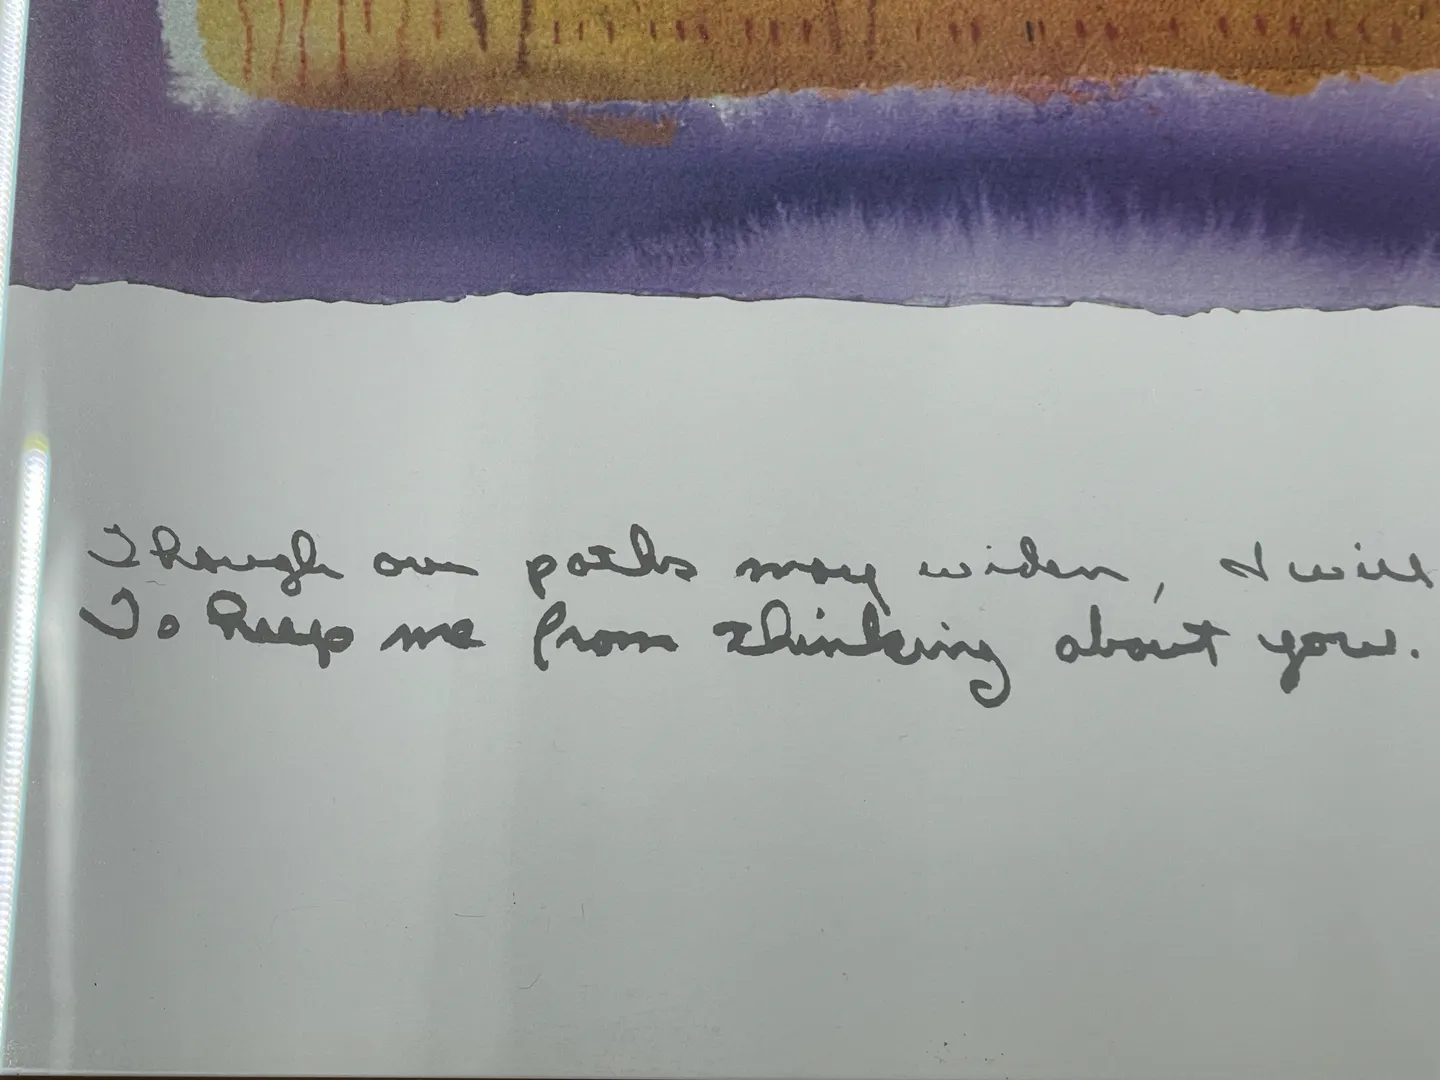 Though our paths may widen, I will
To keep me from thinking about you.